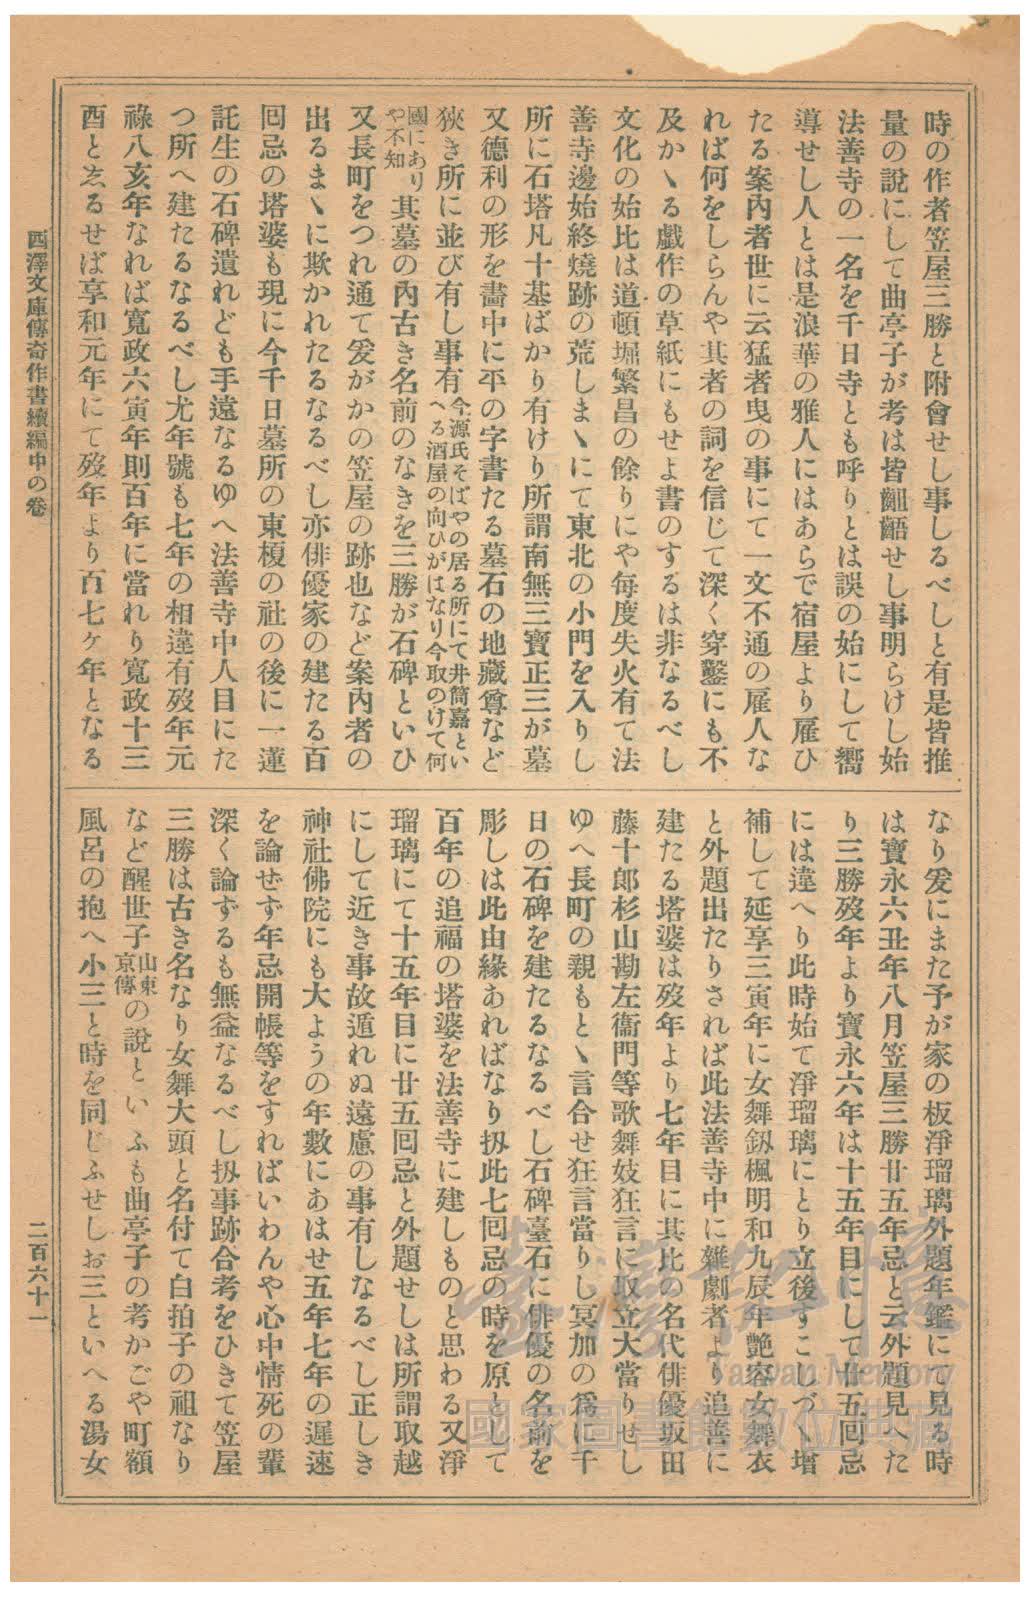 時の作者笠屋三勝と附會せし事しるべしと有是皆推
量の說にして曲亭子が考は皆齟齬せし事明らけし始
法善寺の一名を千日寺とも呼りとは誤の始にして嚮
導せし人とは是浪華の雅人にはあらで宿屋より雇ひ
たる案內者世に云猛者曳の事にて一文不通の雇人な
れば何をしらんや其者の詞を信じて深く穿鑿にも不
及かゝる戱作の草紙にもせよ書のするは非なるべし
文化の始比は道頓堀繁昌の餘りにや每度失火有て法
善寺邊始終燒跡の荒しまゝにて東北の小門を入りし
所に石塔凡十基ばかり有けり所謂南無三寶正三が墓
又德利の形を畵中に平の字書たる墓石の地藏尊など
狹き所に並び有し事有今源氏そばやの居る所にて井筒嘉とい
へる酒屋の向ひがはなり今取のけて何
國にあり
や不知其墓の內古き名前のなきを三勝が石碑といひ
又長町をつれ通て爰がかの笠屋の跡也など案內者の
出るまゝに欺かれたるなるべし亦俳優家の建たる百
囘忌の塔婆も現に今千日墓所の東榎の社の後に一蓮
託生の石碑遺れども手遠なるゆへ法善寺中人目にた
つ所へ建たるなるべし尤年號も七年の相違有歿年元
祿八亥年なれば寬政六寅年則百年に當れり寬政十三
酉としるせば享和元年にて歿年より百七ヶ年となる
なり爰にまた予が家の板淨瑠璃外題年鑑にて見る時
は寶永六丑年八月笠屋三勝廿五年忌と云外題見へた
り三勝歿年より寶永六年は十五年目にして廿五囘忌
には違へり此時始て淨瑠璃にとり立後すこしづゝ增
補して延享三寅年に女舞釼楓明和九辰年艷容女舞衣
と外題出たりされば此法善寺中に雜劇者より追善に
建たる塔婆は歿年より七年目に其比の名代俳優坂田
藤十郎杉山勘左衞門等歌舞妓狂言に取立大當りせし
ゆへ長町の親もとゝ言合せ狂言當りし冥加の爲に千
日の石碑を建たるなるべし石碑臺石に俳優の名前を
彫しは此由緣あればなり扨此七囘忌の時を原として
百年の追福の塔婆を法善寺に建しものと思わる又淨
瑠璃にて十五年目に廿五囘忌と外題せしは所謂取越
にして近き事故遁れぬ遠慮の事有しなるべし正しき
神社佛院にも大ようの年數にあはせ五年七年の遲速
を論せず年忌開帳等をすればいわんや心中情死の輩
深く論ずるも無益なるべし扨事跡合考をひきて笠屋
三勝は古き名なり女舞大頭と名付て白拍子の祖なり
など醒世子山東
京傳の說といふも曲亭子の考かごや町額
風呂の抱へ小三と時を同じふせしお三といへる湯女
西澤文庫傳奇作書續編中の卷
二百六十一
臺灣記憶
Taiwan Memory
國家圖書館數位典藏